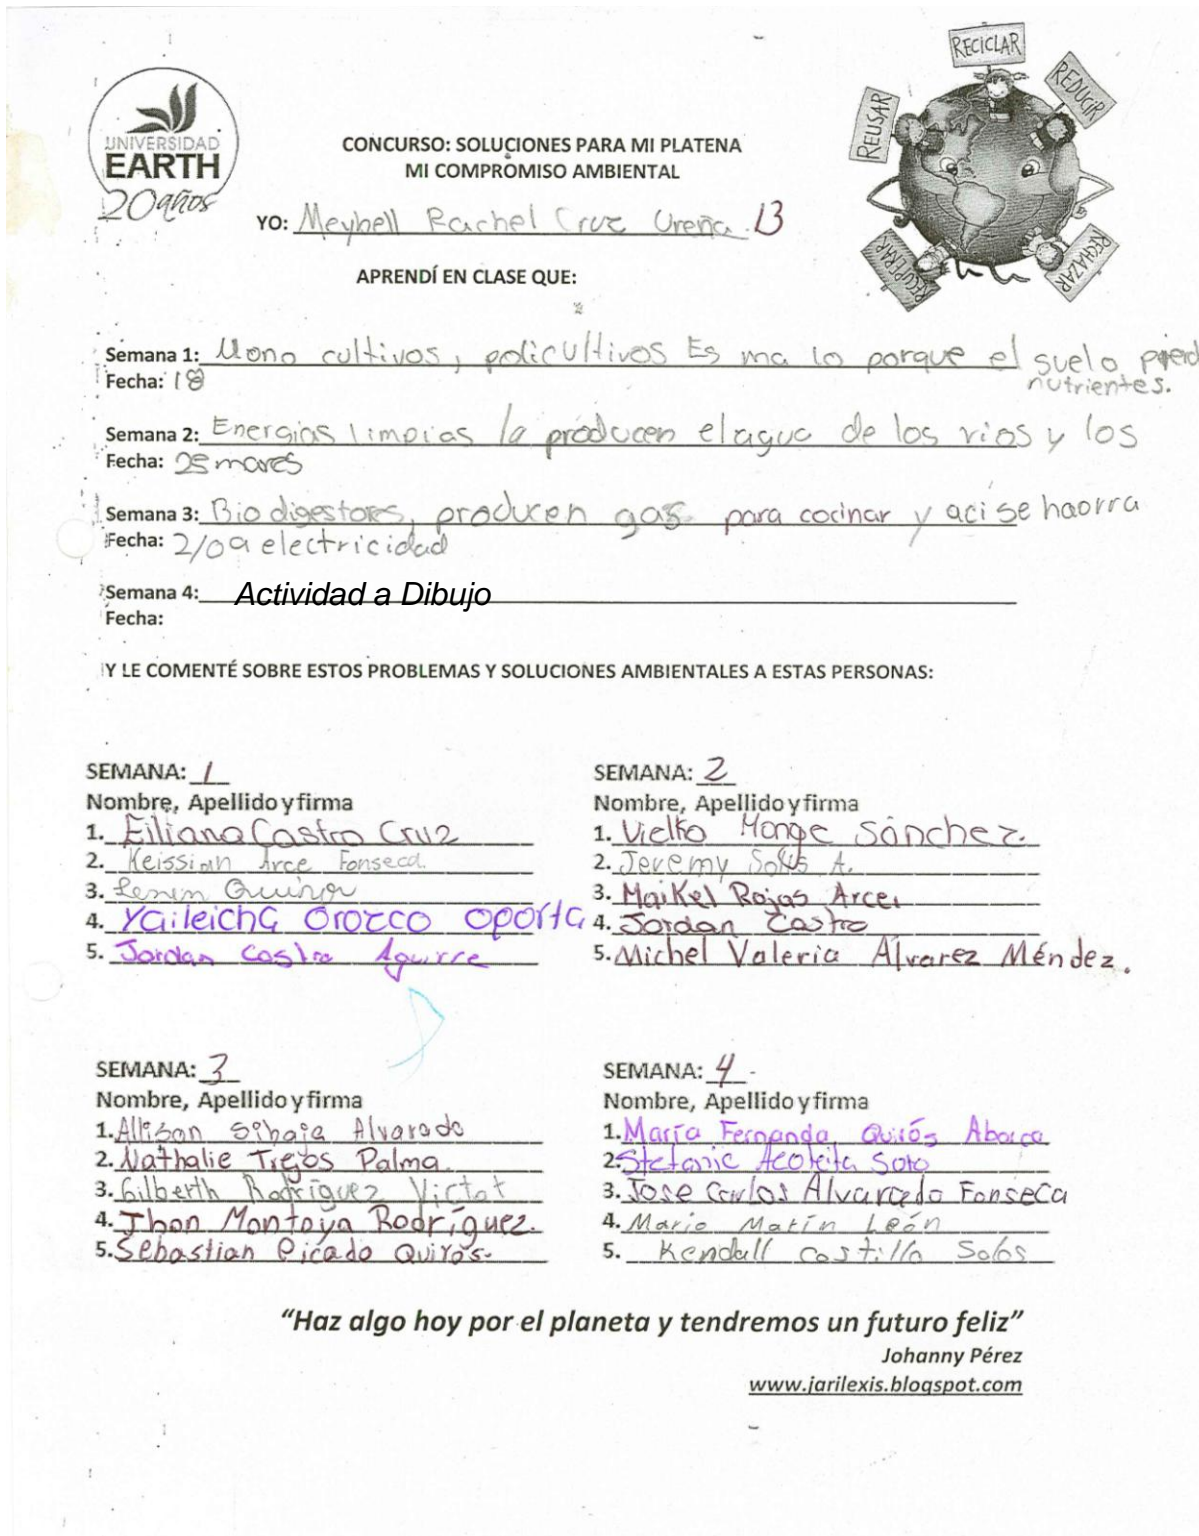 RECICLAR
REDUCIR
REUSAR
RECHAZAR
RECUPERAR
UNIVERSIDAD
EARTH
20años
CONCURSO: SOLUCIONES PARA MI PLATENA
MI COMPROMISO AMBIENTAL
YO: Meybell Rachel Cruz Ureña. 13
APRENDÍ EN CLASE QUE:
Semana 1: Mono cultivos, policultivos Es ma lo porque el suelo pierd
Fecha: 18 nutrientes.
Semana 2: Energias limpias la producen el agua de los rios y los
Fecha: 25 mares
Semana 3: Bio digestores, producen gas para cocinar y aci se haorra
Fecha: 2/09 electricidad
Semana 4: Actividad a Dibujo
Fecha:
Y LE COMENTÉ SOBRE ESTOS PROBLEMAS Y SOLUCIONES AMBIENTALES A ESTAS PERSONAS:
SEMANA: 1
Nombre, Apellido y firma
1. Eiliana Castro Cruz
2. Keissian Arce Fonseca.
3. Lenin
4. Yaileicha Orozco oporta
5. Jordan Castro Aguirre
SEMANA: 2
Nombre, Apellido y firma
1. Vielko Monge Sánchez.
2. Jeremy Solis A.
3. Maikel Rojas Arce.
4. Jordan Castro
5. Michel Valeria Álvarez Méndez.
SEMANA: 3
Nombre, Apellido y firma
1. Allison Sibaja Alvarado
2. Nathalie Trejos Palma.
3. Gilberth Rodríguez
4. Jhon Montoya Rodríguez.
5. Sebastian Picado Quirós.
SEMANA: 4
Nombre, Apellido y firma
1. María Fernanda Quirós Abarca
2. Stefanie Soto
3. Jose Carlos Alvarado Fonseca
4. Mario Marín León
5. Kendall Castillo
“Haz algo hoy por el planeta y tendremos un futuro feliz”
Johanny Pérez
www.jarilexis.blogspot.com